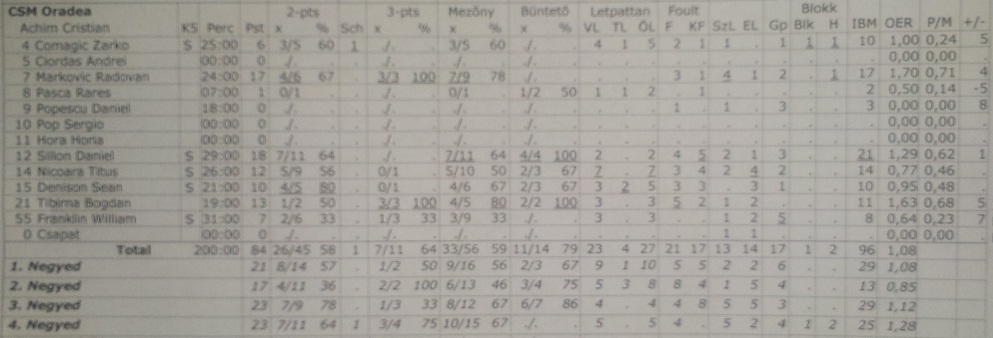 CSM Oradea 2-pts 3-pts Mezőny Büntető Letpattan Foult Blokk
Achim Cristian KS Perc Pst x % Sch x % x % x % VL TL ÖL F KF SzL EL Gp Blk H IBM OER P/M +/-
4 Comagic Zarko S 25:00 6 3/5 60 1 ./. . 3/5 60 ./. . 4 1 5 2 1 1 . 1 1 1 10 1,00 0,24 5
5 Ciordas Andrei 00:00 0 ./. . . ./. . ./. . ./. . . . . . . . . . . . . 0,00 0,00 .
7 Markovic Radovan 24:00 17 4/6 67 . 3/3 100 7/9 78 ./. . . . . 3 1 4 1 2 . 1 17 1,70 0,71 4
8 Pasca Rares 07:00 1 0/1 . . ./. . 0/1 . 1/2 50 1 1 2 . 1 . . . . . 2 0,50 0,14 -5
9 Popescu Daniel 18:00 0 ./. . . ./. . ./. . ./. . . . . 1 . 1 . 3 . . 3 0,00 0,00 8
10 Pop Sergio 00:00 0 ./. . . ./. . ./. . ./. . . . . . . . . . . . . 0,00 0,00 .
11 Hora Horia 00:00 0 ./. . . ./. . ./. . ./. . . . . . . . . . . . . 0,00 0,00 .
12 Sillion Daniel S 29:00 18 7/11 64 . ./. . 7/11 64 4/4 100 2 . 2 4 5 2 1 3 . . 21 1,29 0,62 1
14 Nicoara Titus S 26:00 12 5/9 56 . 0/1 . 5/10 50 2/3 67 7 . 7 3 4 2 4 2 . . 14 0,77 0,46 .
15 Denison Sean S 21:00 10 4/5 80 . 0/1 . 4/6 67 2/3 67 3 2 5 3 3 . 3 1 . . 10 0,95 0,48 .
21 Tibirna Bogdan 19:00 13 1/2 50 . 3/3 100 4/5 80 2/2 100 3 . 3 5 2 1 2 . . . 11 1,63 0,68 5
55 Franklin William S 31:00 7 2/6 33 . 1/3 33 3/9 33 ./. . 3 . 3 . . 1 2 5 . . 8 0,64 0,23 7
0 Csapat 00:00 0 ./. . . ./. . ./. . ./. . . . . . . 1 1 . . . . 0,00 0,00 .
Total 200:00 84 26/45 58 1 7/11 64 33/56 59 11/14 79 23 4 27 21 17 13 14 17 1 2 96 1,08
1. Negyed 21 8/14 57 . 1/2 50 9/16 56 2/3 67 9 1 10 5 5 2 2 6 . . 29 1,08
2. Negyed 17 4/11 36 . 2/2 100 6/13 46 3/4 75 5 3 8 8 4 1 5 4 . . 13 0,85
3. Negyed 23 7/9 78 . 1/3 33 8/12 67 6/7 86 4 . 4 4 8 5 5 3 . . 29 1,12
4. Negyed 23 7/11 64 1 3/4 75 10/15 67 ./. . 5 . 5 4 . 5 2 4 1 2 25 1,28